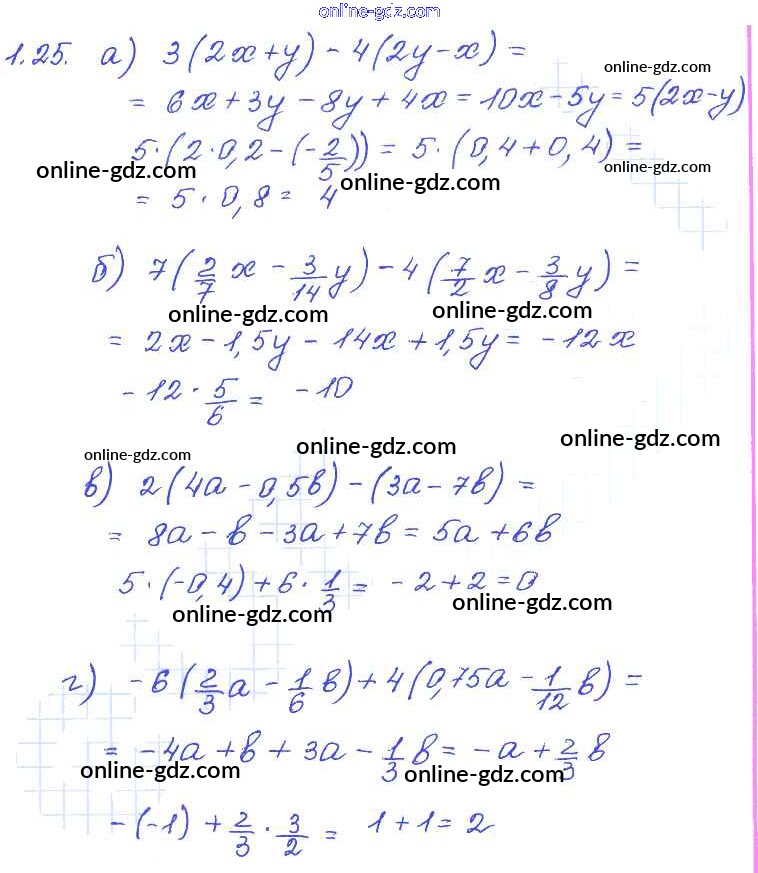 online-gdz.com
1.25. а) 3(2x+y) - 4(2y-x) =
online-gdz.com
= 6x+3y-8y+4x = 10x-5y = 5(2x-y)
5·(2·0,2-(-2/5)) = 5·(0,4+0,4) =
online-gdz.com
online-gdz.com
= 5·0,8 = 4
б) 7(2/7x - 3/14y) - 4(7/2x - 3/8y) =
online-gdz.com
online-gdz.com
= 2x-1,5y-14x+1,5y = -12x
-12·5/6 = -10
online-gdz.com
online-gdz.com
online-gdz.com
в) 2(4a-0,5b)-(3a-7b) =
= 8a-b-3a+7b = 5a+6b
5·(-0,4)+6·1/3 = -2+2=0
online-gdz.com
online-gdz.com
г) -6(2/3a - 1/6b)+4(0,75a - 1/12b) =
= -4a+b+3a-1/3b = -a+2/3b
online-gdz.com
online-gdz.com
-(-1)+2/3·3/2 = 1+1=2